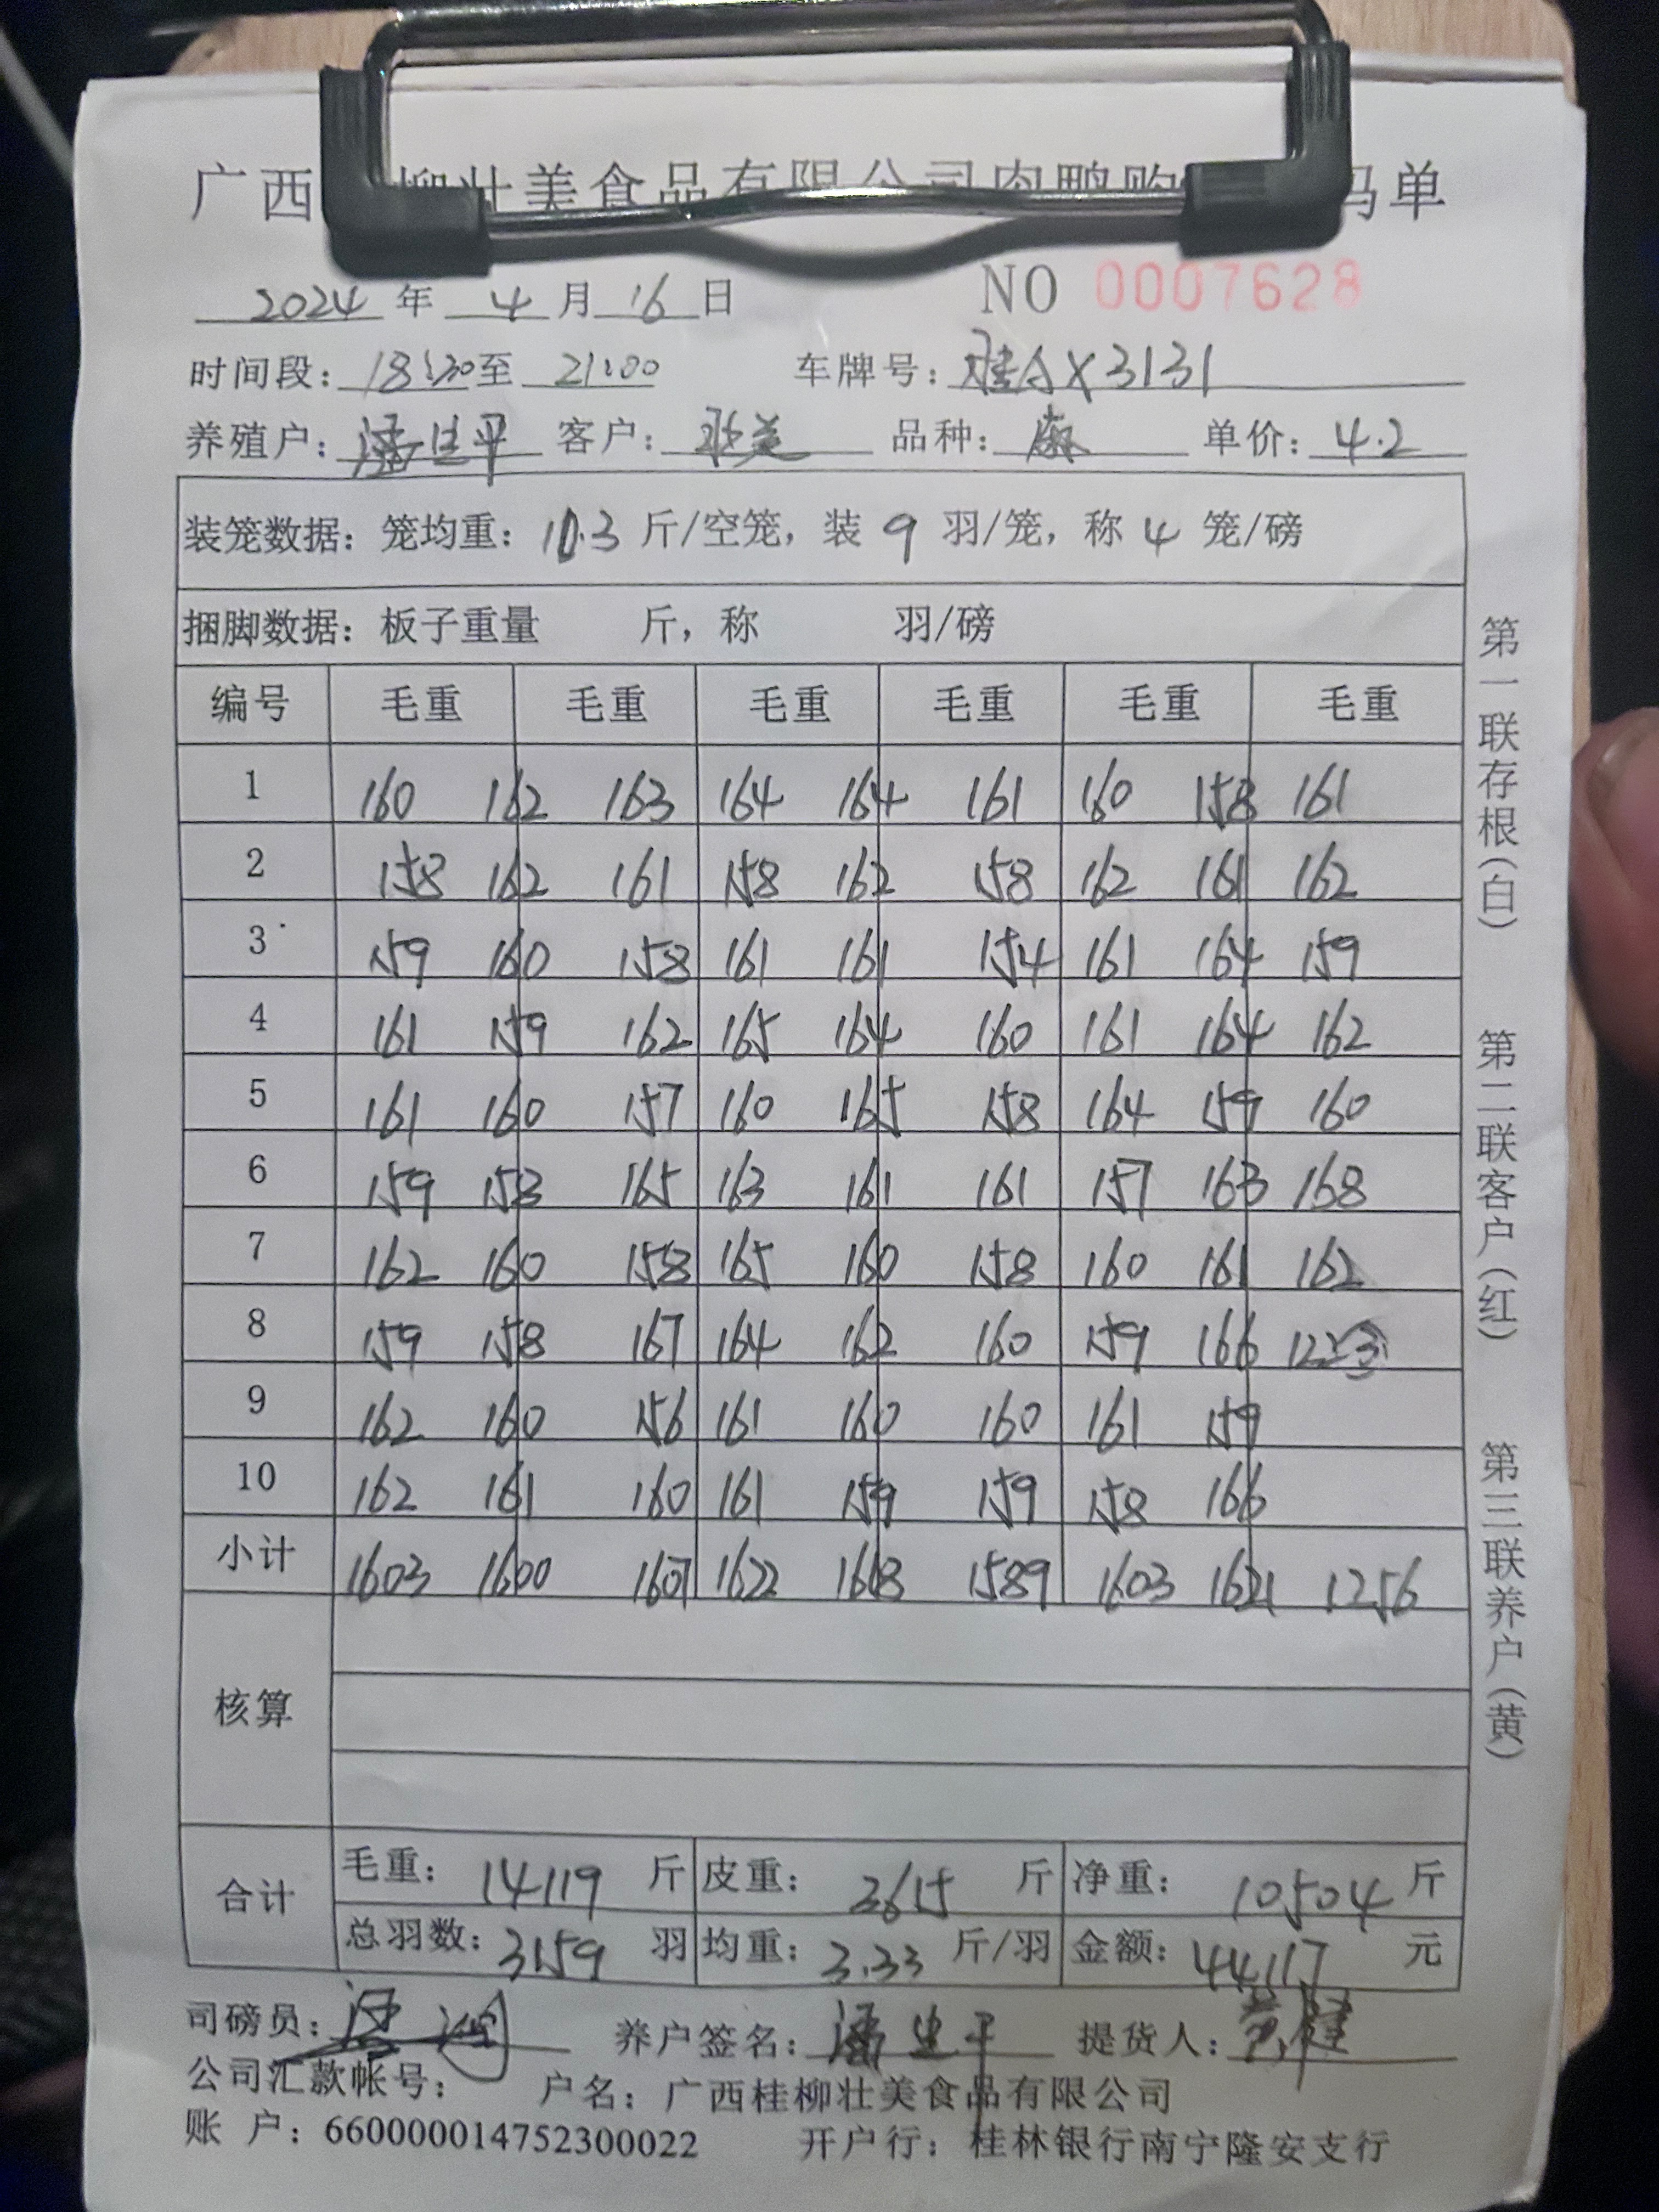 广西 柳壮美食品有限公司肉鸭购 码单
2024 年 4 月 16 日 NO 0007628
时间段: 18:30 至 21:00 车牌号: 桂AX3131
养殖户: 潘生平 客户: 品种: 单价: 4.2
装笼数据: 笼均重: 10.3 斤/空笼, 装 9 羽/笼, 称 4 笼/磅
捆脚数据: 板子重量 斤, 称 羽/磅
编号 毛重 毛重 毛重 毛重 毛重 毛重
1 160 162 163 164 164 161 160 158 161
2 158 162 161 158 162 158 162 161 162
3 159 160 158 161 161 154 161 164 159
4 161 159 162 165 164 160 161 164 162
5 161 160 157 160 165 158 164 159 160
6 159 158 165 163 161 161 157 163 168
7 162 160 158 165 160 158 160 161 162
8 159 158 167 164 162 160 159 166 122③
9 162 160 156 161 160 160 161 159
10 162 161 160 161 159 159 158 166
小计 1603 1600 1607 1622 1618 1589 1603 1621 1256
核算
合计 毛重: 14119 斤 皮重: 3615 斤 净重: 10504 斤
总羽数: 3159 羽 均重: 3.33 斤/羽 金额: 44117 元
司磅员: 养户签名: 潘生平 提货人: 黄健
公司汇款帐号: 户名: 广西桂柳壮美食品有限公司
账 户: 660000014752300022 开户行: 桂林银行南宁隆安支行
第一联存根(白) 第二联客户(红) 第三联养户(黄)